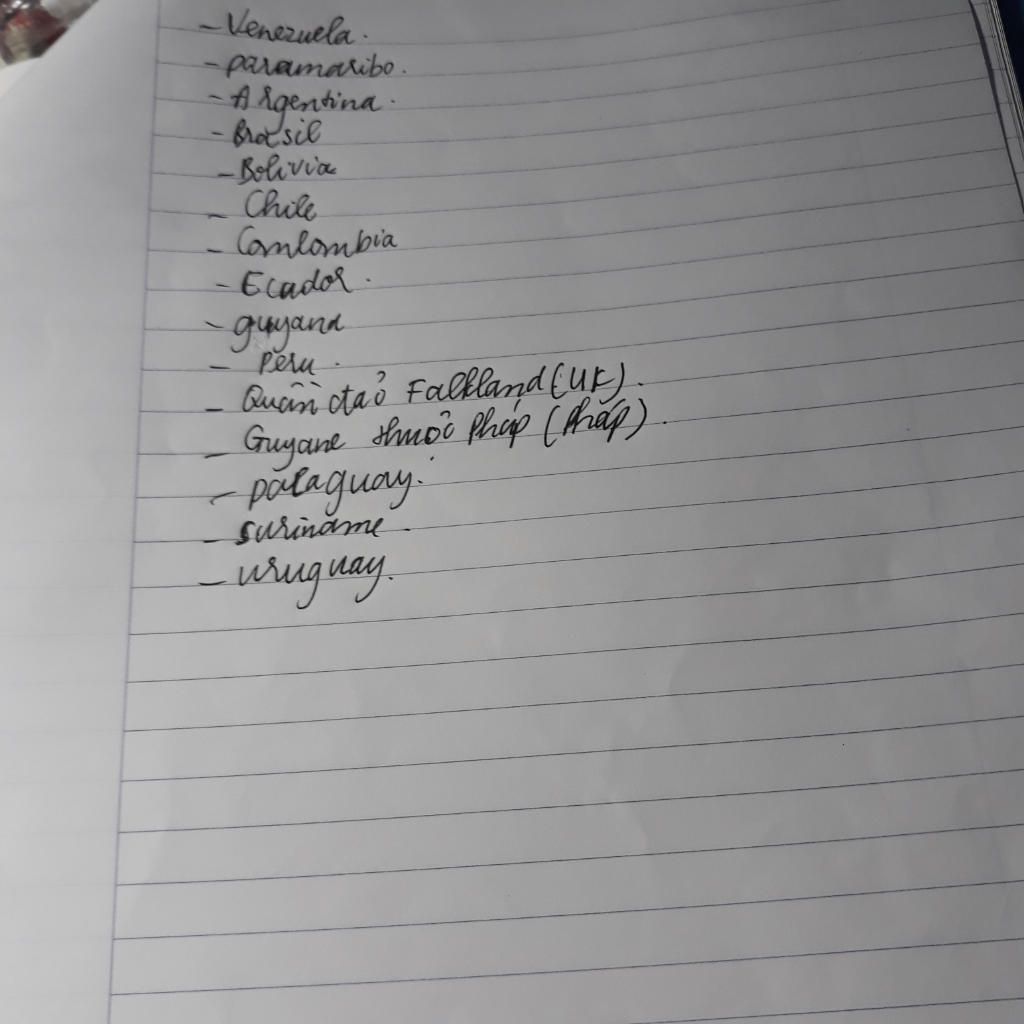 - Venezuela.
- paramaribo.
- Argentina.
- Brasil
- Bolivia
- Chile
- Comlombia
- Ecador.
- guyana
- Peru.
- Quần đảo Falkland (UK).
- Guyane thuộc Pháp (Pháp).
- paraguay.
- suriname.
- uruguay.